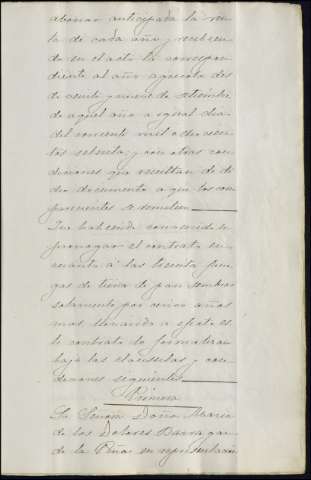 abonar anticipada la ren-
ta de cada año y recibien-
do en el acto la correspon-
diente al año a que cuenta des-
de veinte y nueve de setiembre
de aquel año a igual dia
del corriente mil ochocien-
tos setenta; y con otras con-
diciones que resultan de di-
cho documento a que los com-
parecientes se remiten
Que habiendo convenido
prorrogar el contrato en
cuanto á las treinta fane-
gas de tierra de pan sembrar
solamente por años
mas llevando a efecto es-
te contrato lo formalizan
bajo las clausulas y con-
diciones siguientes
Primera
La Señora Doña Maria
de los Dolores Barragan
de la Peña en representacion